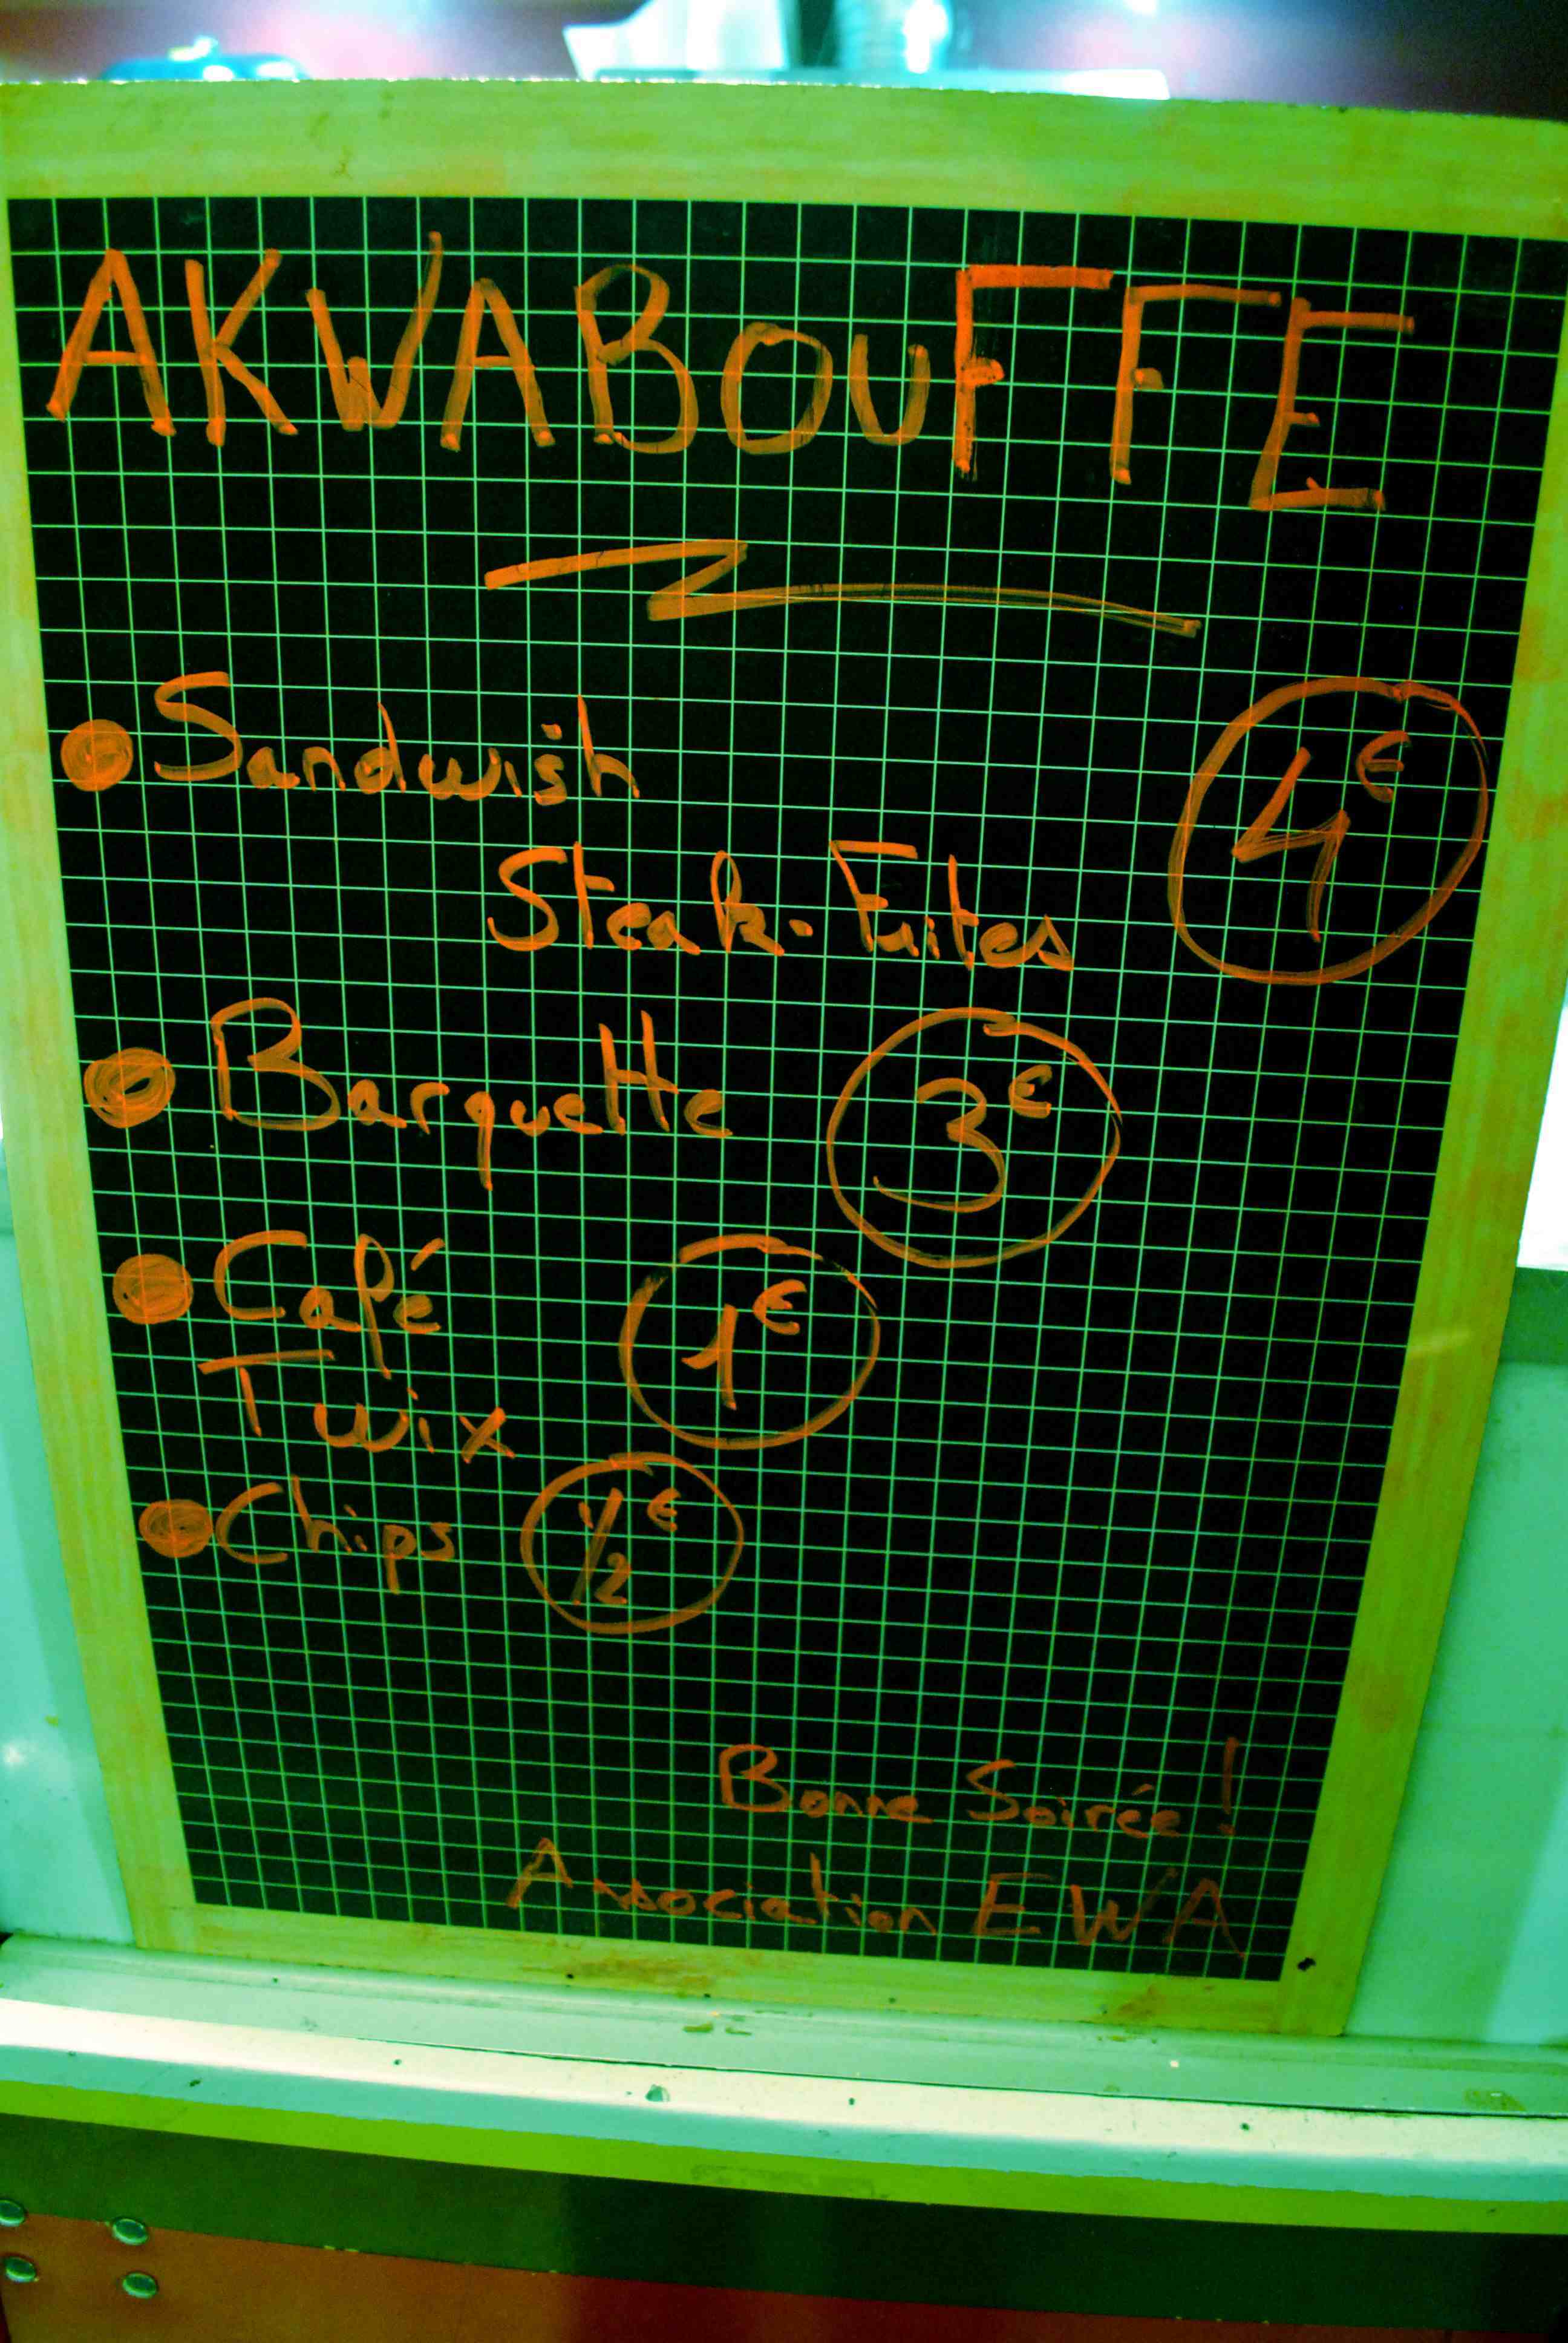 AKWABOUFFE
Sandwish
Steak-Frites 4€
Barquette 3€
Café 1€
Twix
Chips 1/2€
Bonne Soirée !
Association EWA